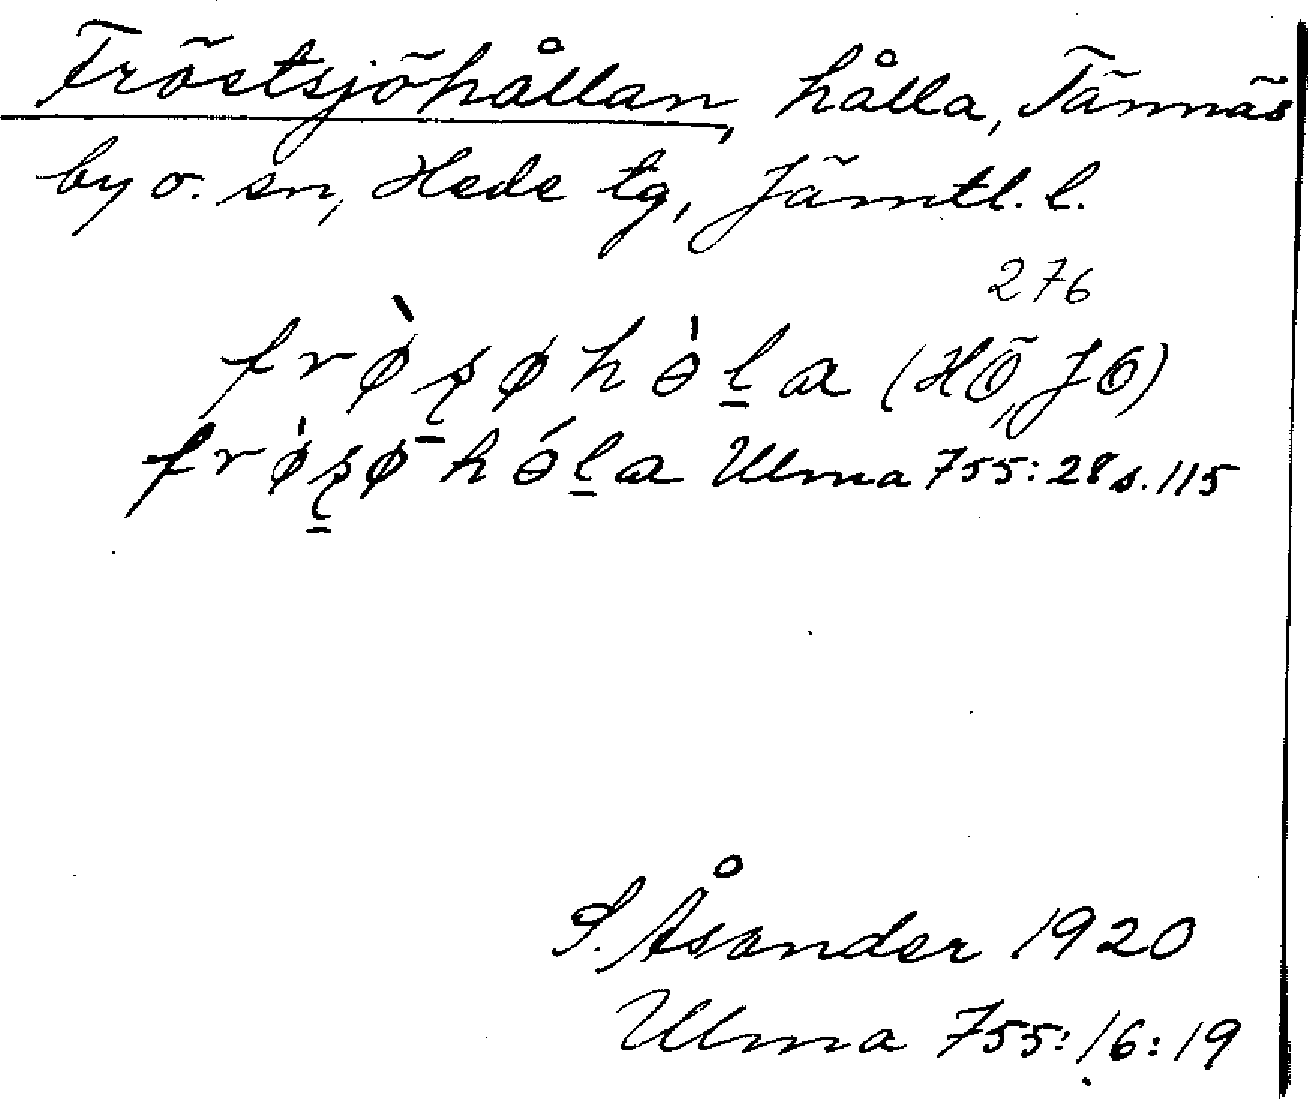 Fröstsjöhållan, hålla, Tännäs
by o. sn, Hede tg, Jämtl. l.
276
frø̀ʂøhòl̠a (HÖ, JO)
frǿʂøhól̠a Ulma 755:28 s. 115
S. Åsander 1920
Ulma 755:16:19